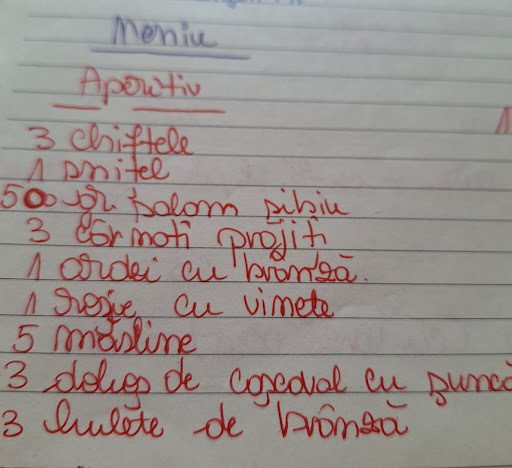 Meniu
Aperitiv
3 chiftele
1 șnițel
500 gr salam sibiu
3 cârnați prăjiți
1 ardei cu brânză.
1 roșie cu vinete
5 măsline
3 de cașcaval cu șuncă
3 bulete de brânză